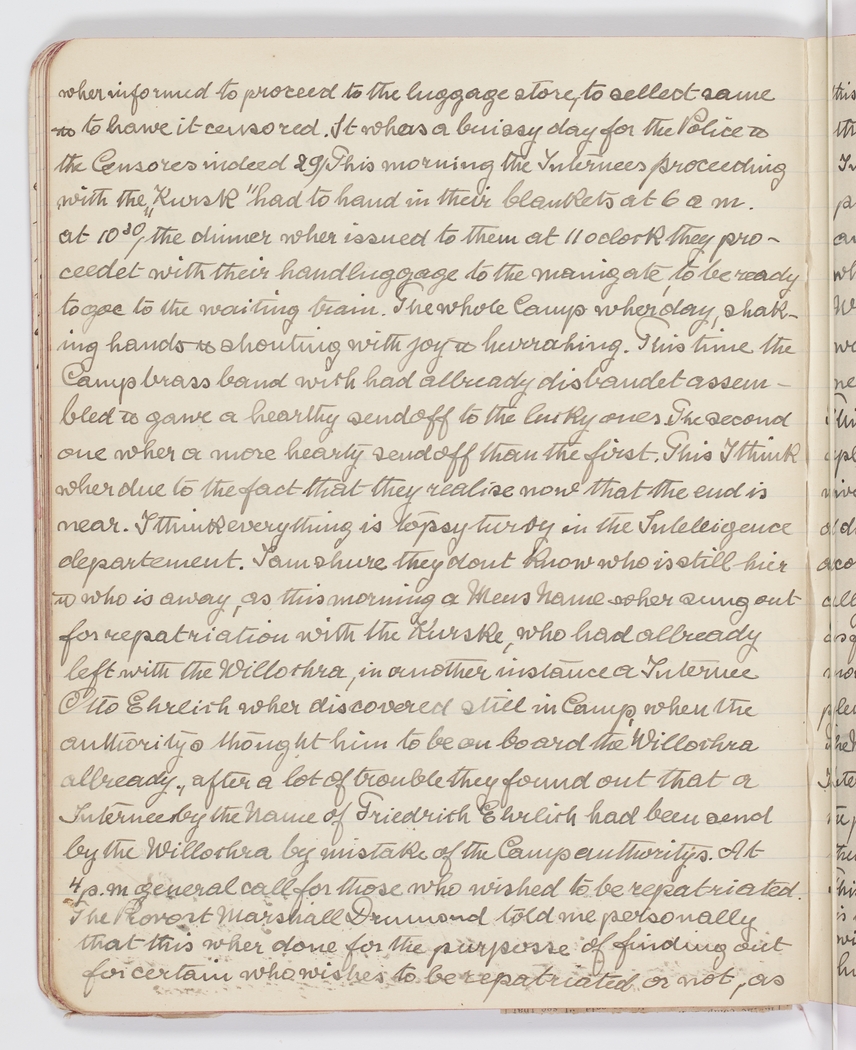 wher informed to proceed to the luggage store, to sellect same
& to hawe it censored. It whas a buissy day for the Police &
the Censores indeed 29/ This morning the Internees proceeding
with the "Kursk" had to hand in their blankets at 6 a m.
at 10 30/, the dinner wher issued to them at 11 oclock they pro-
ceedet with their handluggage to the mainigate, to be ready
to goe to the waiting train. The whole Camp wher day, shak-
ing hands & shouting with joy & hurrahing. This time the
Camp brass band wich had allready disbandet assem-
bled & gawe a hearthy sendoff to the lucky ones. The second
one wher a more hearty sendoff than the first. This I think
wher due to the fact that they realise now that the end is
near. I think everything is topsy turvy in the Intelligence
departement. I am shure they dont know who is still hier
& who is away, as this morning a Mens Name wher sung out
for repatriation with the Kurske, who had allready
left with the Willochra, in another instance a Internee
Otto Ehrlich wher discovered still in Camp, when the
authoritys thought him to be on board the Willochra
allready., after a lot of trouble they found out that a
Internee by the Name of Friedrich Ehrlich had been send
by the Willochra by mistake of the Camp authoritys. At
4 p.m general call for those who wished to be repatriated.
The Provost Marshall Drumond told me personally
that this wher done for the purposse of finding out
for certain who wishes to be repatriated or not, as